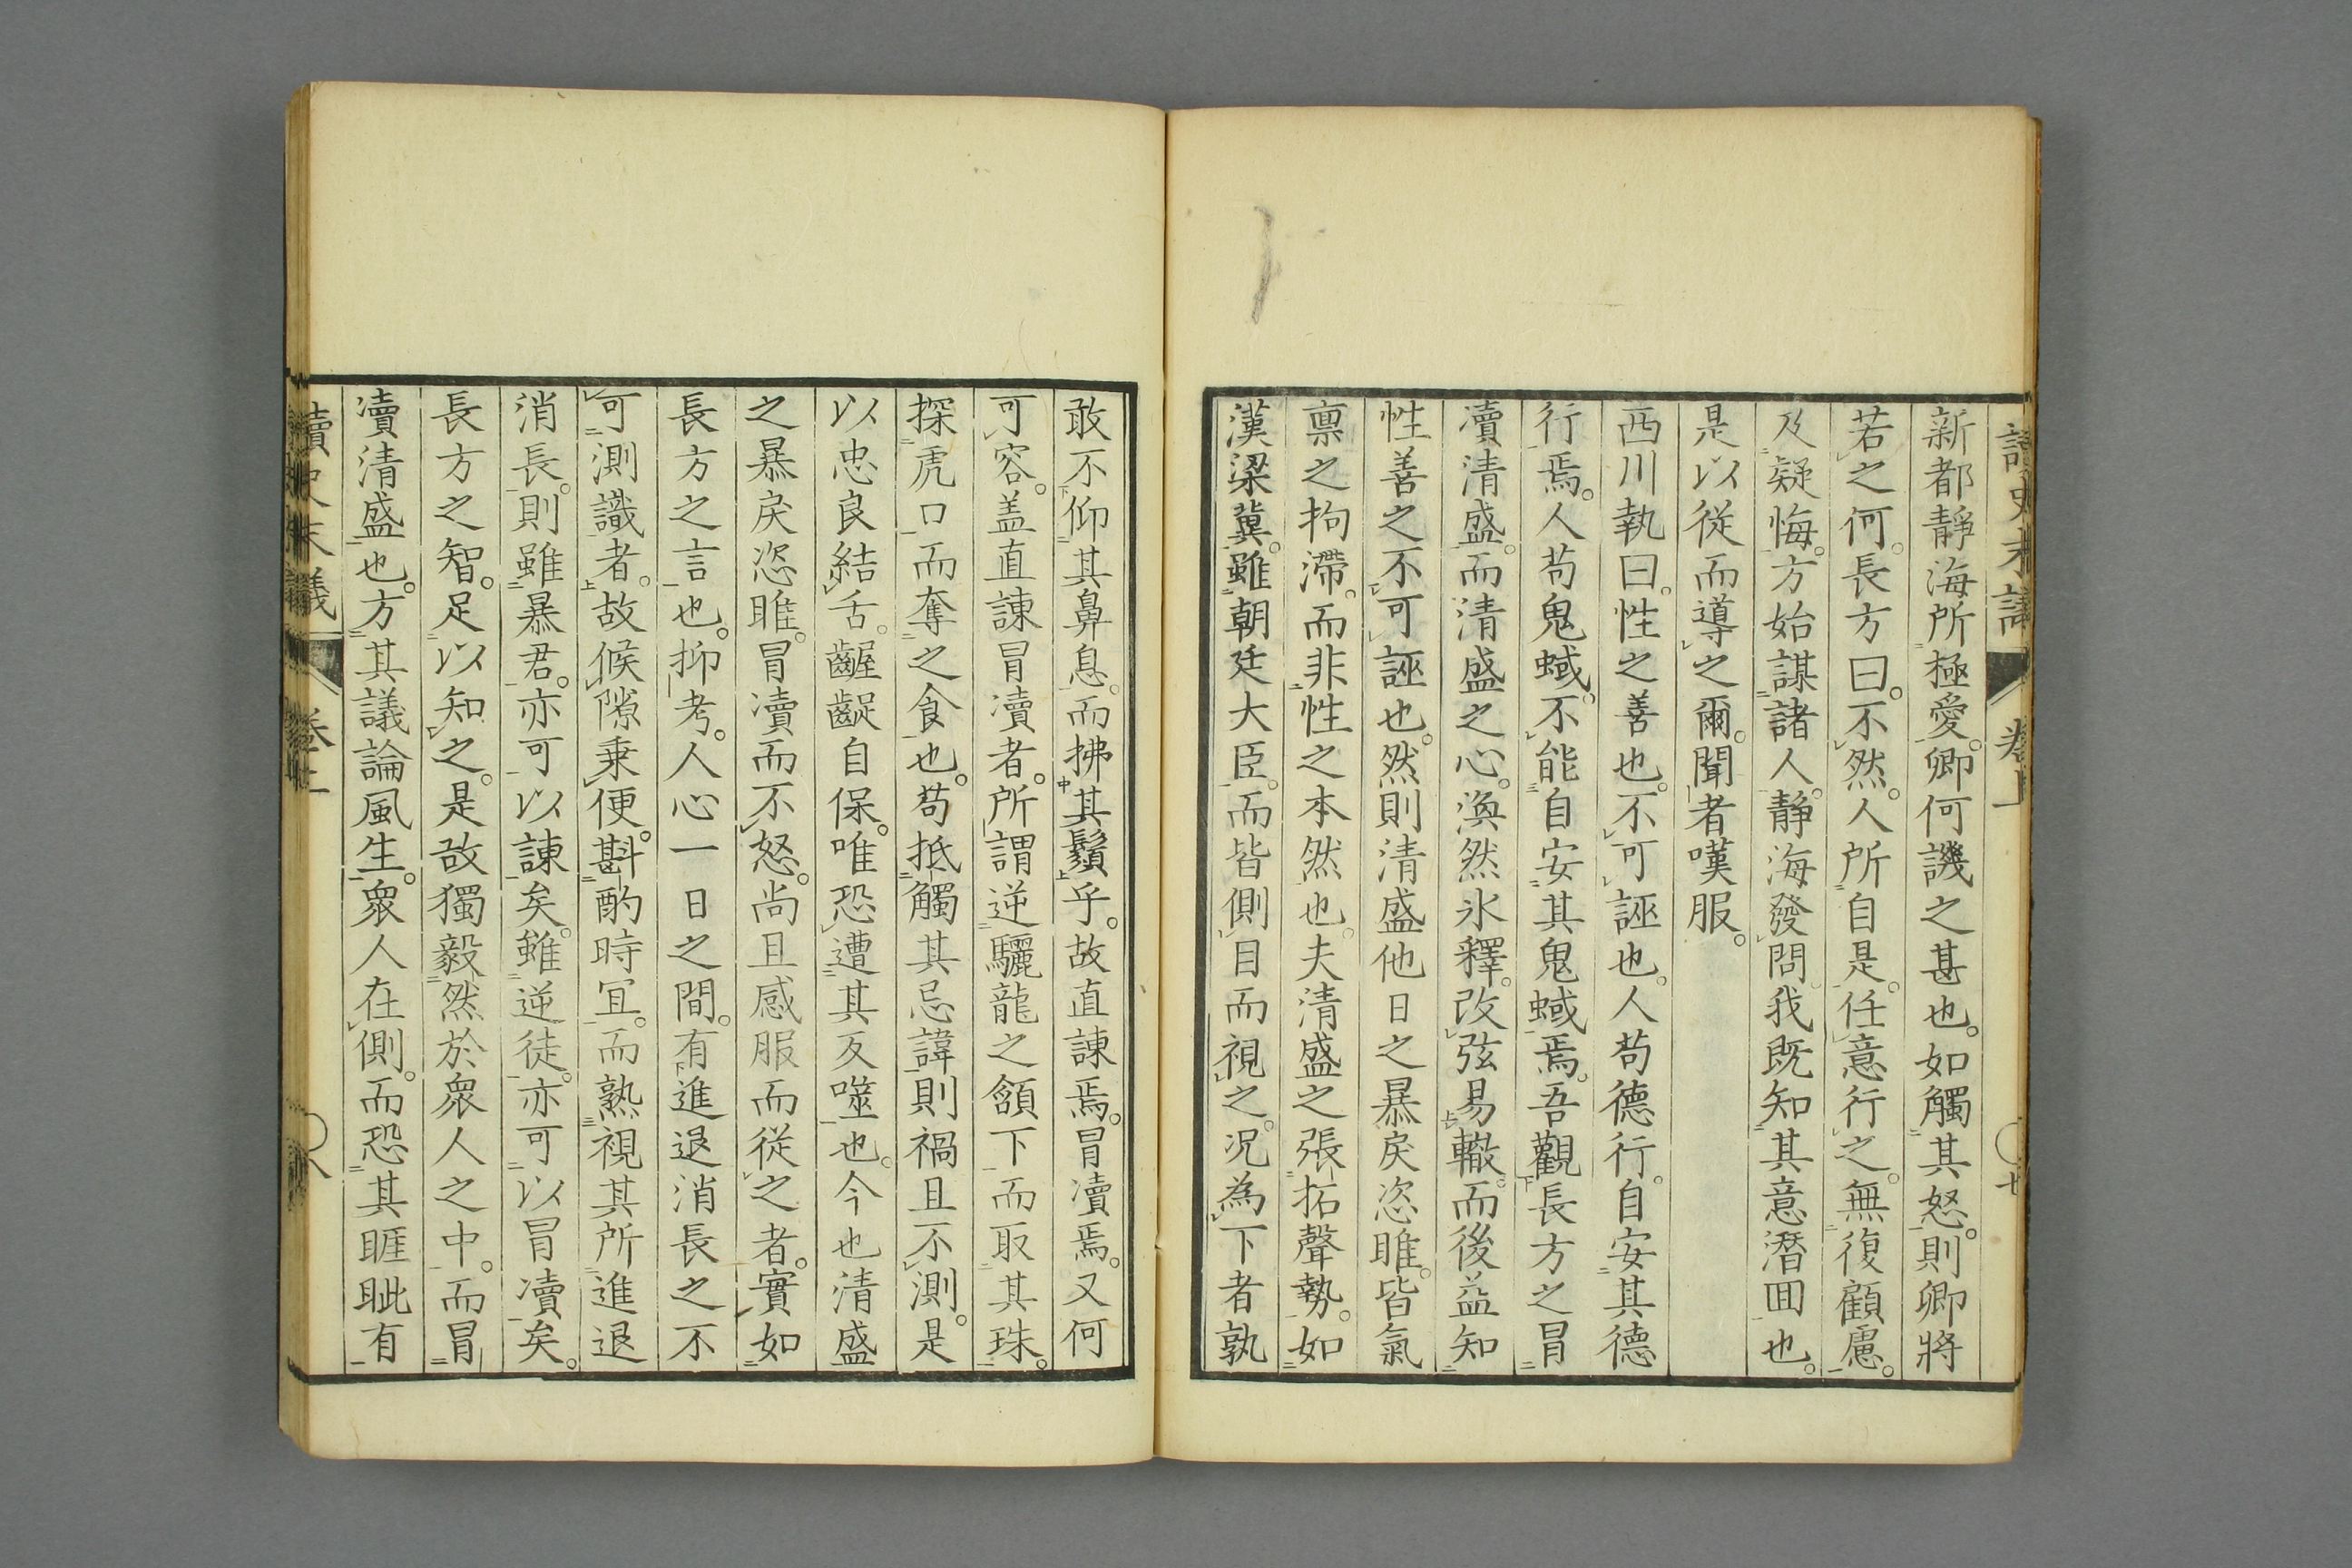 新都靜海所極愛。卿何譏之甚也。如觸其怒。則卿將
若之何。長方曰。不然。人所自是。任意行之。無復顧慮。
及疑悔。方始謀諸人。靜海發問我既知其意潛囬也。
是以從而導之爾。聞者嘆服。
西川執曰。性之善也。不可誣也。人苟德行。自安其德
行焉。人苟鬼蜮。不能自安其鬼蜮焉。吾觀長方之冒
瀆清盛。而清盛之心。渙然氷釋。改弦易轍。而後益知
性善之不可誣也。然則清盛他日之暴戾恣睢。皆氣
禀之拘滯。而非性之本然也。夫清盛之張拓聲勢。如
漢梁冀。雖朝廷大臣。而皆側目而視之。况為下者孰
敢不仰其鼻息。而拂其鬚乎。故直諌焉。冒瀆焉。又何
可容。盖直諌冒瀆者。所謂逆驪龍之頷下而取其珠。
探虎口而奪之食也。苟抵觸其忌諱則禍且不測。是
以忠良結舌。齷齪自保。唯恐遭其反噬也。今也清盛
之暴戾恣睢。冒瀆而不怒。尚且感服而從之者。實如
長方之言也。抑考。人心一日之間。有進退消長之不
可測識者。故候隙乗便。斟酌時宜。而熟視其所進退
消長。則雖暴君。亦可以諌矣。雖逆徒。亦可以冒瀆矣。
長方之智。足以知之。是故獨毅然於衆人之中。而冒
瀆清盛也。方其議論風生。衆人在側。而恐其睚眦有
讀史末議 卷上 〇八